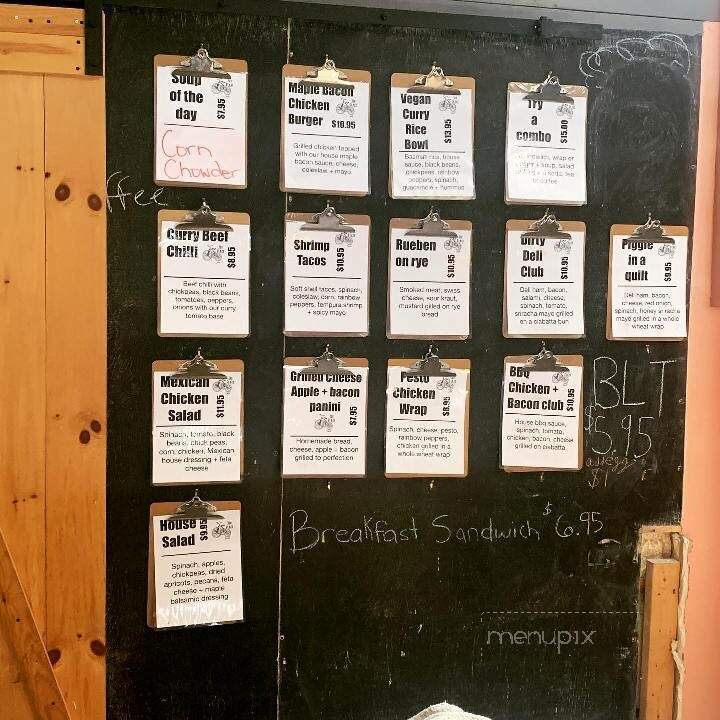 Soup
of the
day
$7.95
Corn
Chowder
Maple Bacon
Chicken
Burger $10.95
Grilled chicken topped
with our house maple
bacon sauce, cheese,
coleslaw + mayo
Vegan
Curry
Rice
Bowl
$13.95
Basmati rice, house
sauce, black beans,
chickpeas, rainbow
peppers, spinach,
guacamole + hummus
Try
a
combo
$15.00
wrap or
+ soup, salad
ffee
Curry Beef
Chilli
$8.95
Beef chilli with
chickpeas, black beans,
tomatoes, peppers,
onions with our curry
tomato base
Shrimp
Tacos
$10.95
Soft shell tacos, spinach,
coleslaw, corn, rainbow
peppers, tempura shrimp
+ spicy mayo
Rueben
on rye
$10.95
Smoked meat, swiss
cheese, sour kraut,
mustard grilled on rye
bread
Dirty
Deli
Club
$10.95
Deli ham, bacon,
salami, cheese,
spinach, tomato,
sriracha mayo grilled
on a ciabatta bun
Piggie
in a
quilt
$9.95
Deli ham, bacon,
cheese, red onion,
spinach, honey sriracha
mayo grilled in a whole
wheat wrap
Mexican
Chicken
Salad
$11.95
Spinach, tomato, black
beans, chick peas,
corn, chicken, Mexican
house dressing + feta
cheese
Grilled Cheese
Apple + bacon
panini
$7.95
Homemade bread,
cheese, apple + bacon
grilled to perfection
Pesto
Chicken
Wrap
$8.95
Spinach, cheese, pesto,
rainbow peppers,
chicken grilled in a
whole wheat wrap
BBQ
Chicken +
Bacon club
$10.95
House bbq sauce,
spinach, tomato,
chicken, bacon, cheese
grilled on ciabatta
BLT
$5.95
House
Salad
$9.95
Spinach, apples,
chickpeas, dried
apricots, pecans, feta
cheese + maple
balsamic dressing
Breakfast Sandwich $6.95
menupix